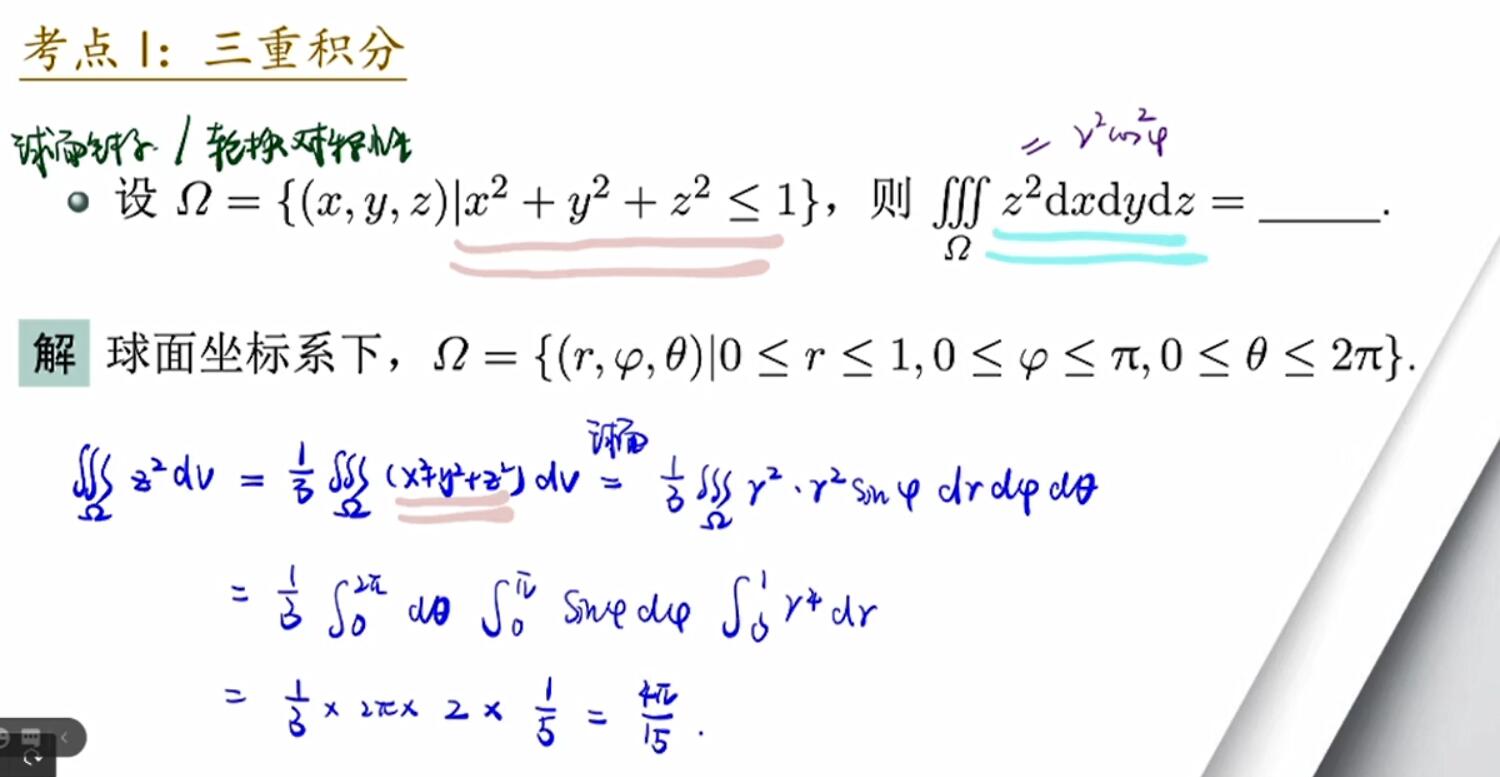 考点 1：三重积分
球面坐标 / 轮换对称性
= r²cos²φ
设 Ω = {(x, y, z)|x² + y² + z² ≤ 1}，则 ∭_Ω z²dxdydz = ______.
解 球面坐标系下，Ω = {(r, φ, θ)|0 ≤ r ≤ 1, 0 ≤ φ ≤ π, 0 ≤ θ ≤ 2π}.
球面
∭_Ω z² dv = 1/3 ∭_Ω (x²+y²+z²) dv = 1/3 ∭_Ω r² · r² sin φ dr dφ dθ
= 1/3 ∫₀^{2π} dθ ∫₀^π sinφ dφ ∫₀^1 r⁴ dr
= 1/3 × 2π × 2 × 1/5 = 4π/15 .